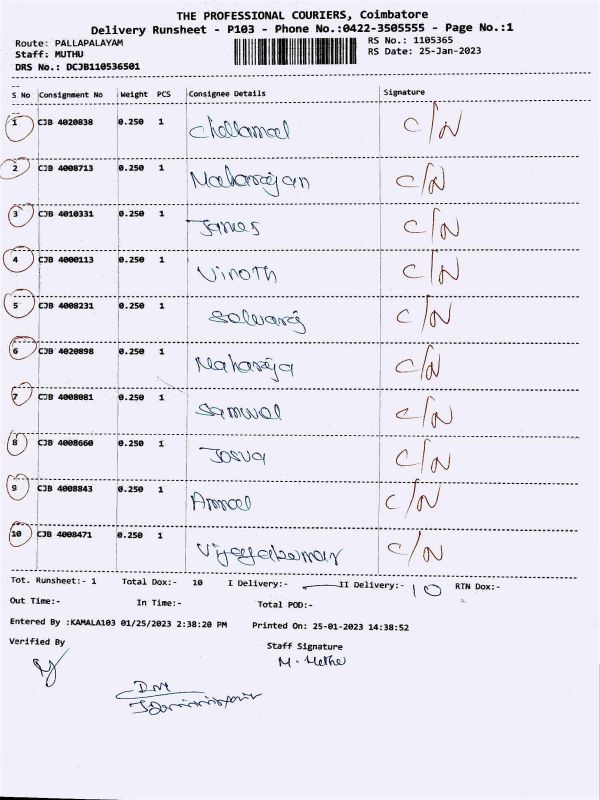 THE PROFESSIONAL COURIERS, Coimbatore
Delivery Runsheet - P103 - Phone No.:0422-3505555 - Page No.:1
Route: PALLAPALAYAM RS No.: 1105365
Staff: MUTHU RS Date: 25-Jan-2023
DRS No.: DCJB110536501
S No Consignment No Weight PCS Consignee Details Signature
1 CJB 4020838 0.250 1 Chellamal C/N
2 CJB 4008713 0.250 1 Maharajan C/N
3 CJB 4010331 0.250 1 James C/N
4 CJB 4000113 0.250 1 Vinoth C/N
5 CJB 4008231 0.250 1 Selvaraj C/N
6 CJB 4020898 0.250 1 Maharaja C/N
7 CJB 4008081 0.250 1 Samuval C/N
8 CJB 4008660 0.250 1 Josua C/N
9 CJB 4008843 0.250 1 Ammal C/N
10 CJB 4008471 0.250 1 Vijayakumar C/N
Tot. Runsheet:- 1 Total Dox:- 10 I Delivery:- II Delivery:- 10 RTN Dox:-
Out Time:- In Time:- Total POD:-
Entered By :KAMALA103 01/25/2023 2:38:20 PM Printed On: 25-01-2023 14:38:52
Verified By Staff Signature
M. Muthu